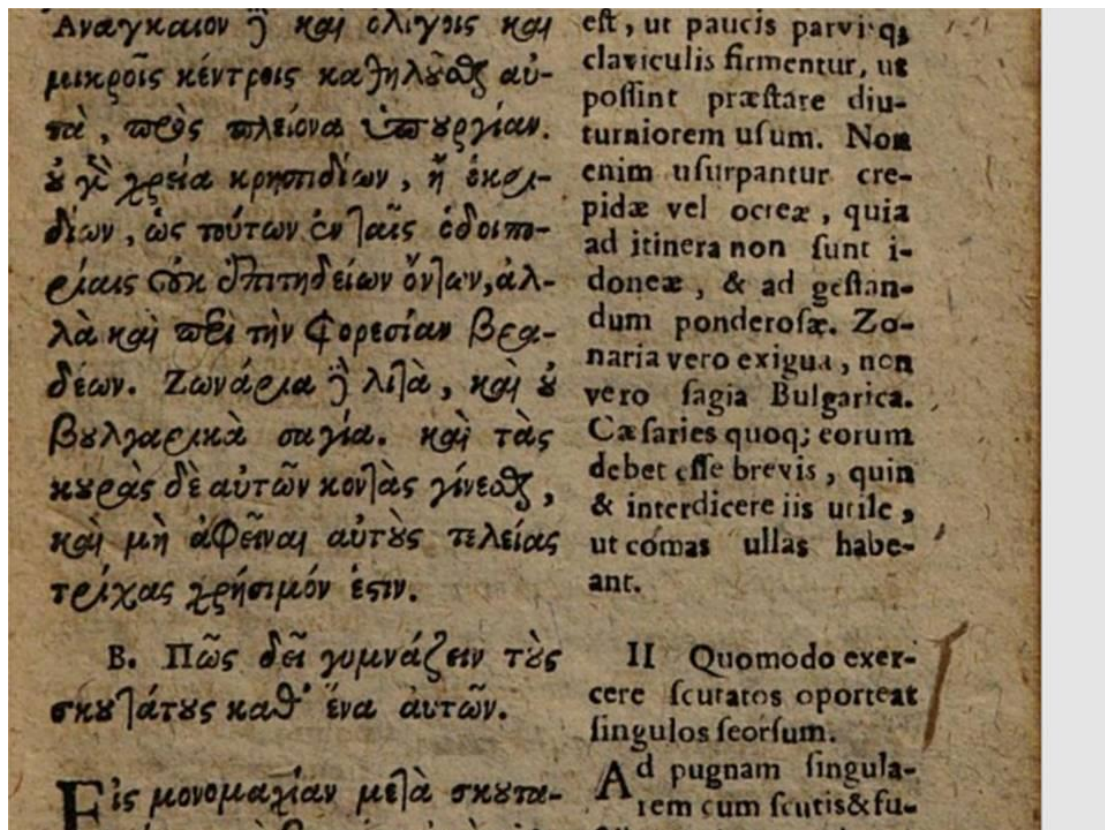 Ἀναγκαῖον δὲ καὶ ὀλίγοις καὶ
μικροῖς κέντροις καθηλοῦσθαι αὐ-
τὰ, πρὸς πλείονα ὑπουργίαν.
οὐ γὰρ χρεία κρηπιδίων, ἢ ὀκρι-
δίων, ὡς τούτων ἐν ταῖς ὁδοιπο-
ρίαις οὐκ ἐπιτηδείων ὄντων, ἀλ-
λὰ καὶ περὶ τὴν φορεσίαν βρα-
δέων. Ζωνάρια δὲ λιτὰ, καὶ οὐ
βουλγαρικὰ σαγία. καὶ τὰς
κουρὰς δὲ αὐτῶν κοντὰς γίνεσθαι,
καὶ μὴ ἀφεῖναι αὐτοὺς τελείας
τρίχας χρήσιμόν ἐστιν.
Β. Πῶς δεῖ γυμνάζειν τοὺς
σκουτάτους καθ' ἕνα αὐτῶν.
Εἰς μονομαχίαν μετὰ σκουτα-
eſt, ut paucis parviſq;
claviculis firmentur, ut
poſſint præſtare diu-
turniorem uſum. Non
enim uſurpantur cre-
pidæ vel ocreæ, quia
ad itinera non ſunt i-
doneæ, & ad geſtan-
dum ponderoſæ. Zo-
naria vero exigua, non
vero ſagia Bulgarica.
Cæſaries quoq; eorum
debet eſſe brevis, quin
& interdicere iis utile,
ut comas ullas habe-
ant.
II Quomodo exer-
cere ſcutatos oporteat
ſingulos ſeorſum.
Ad pugnam ſingula-
rem cum ſcutis & fu-